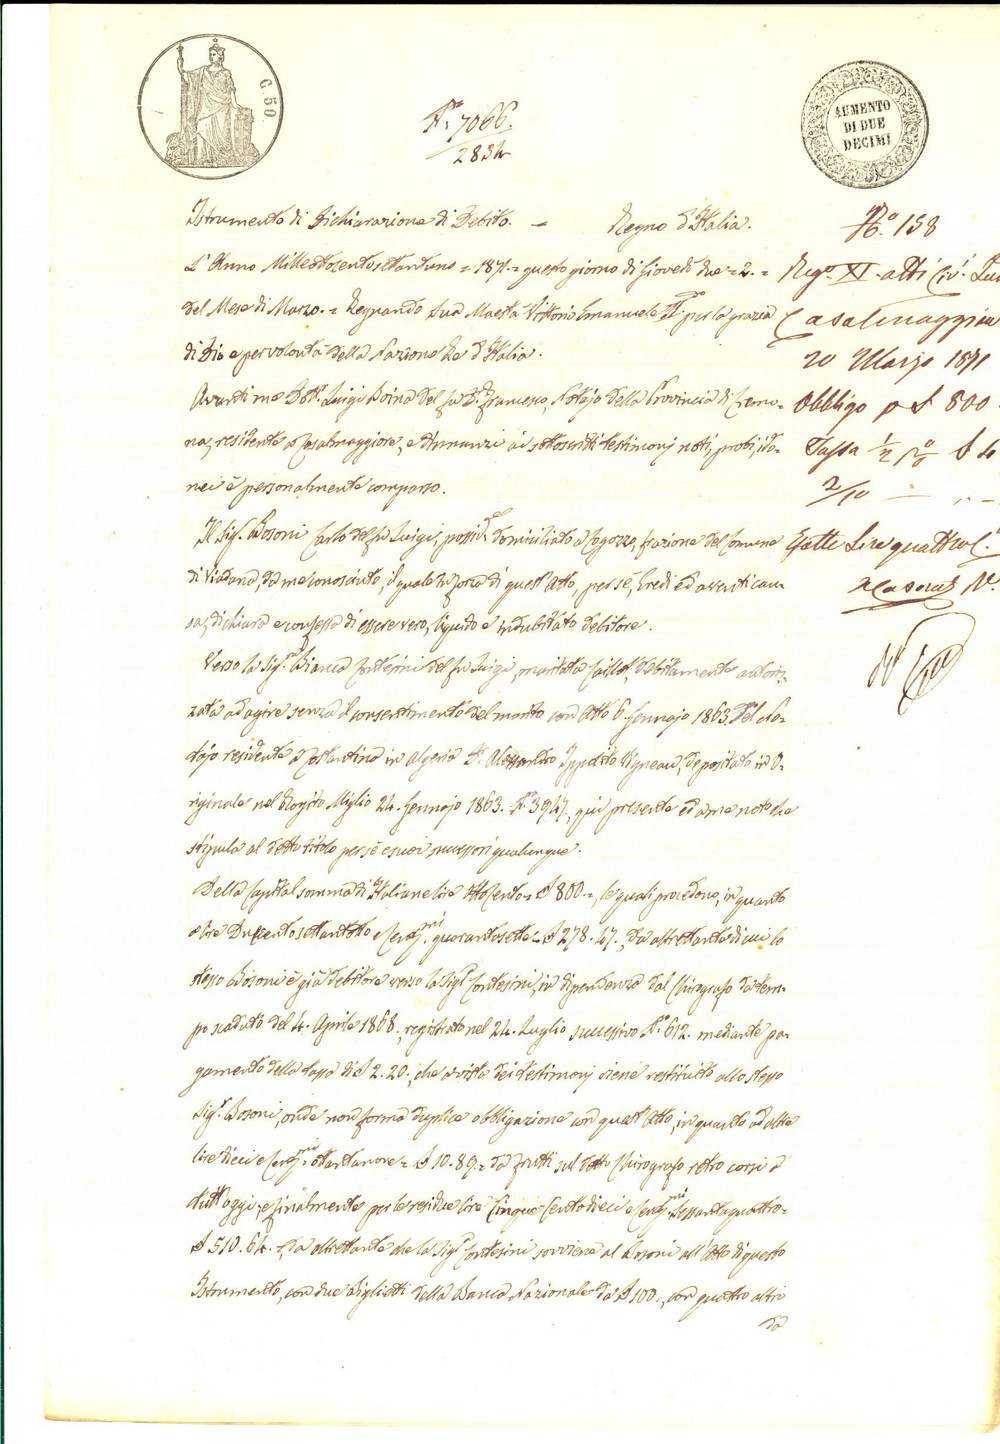 C. 50.
AUMENTO
DI DUE
DECIMI
N.° 7066.
2834
Istrumento di Dichiarazione di Debito. = Regno d'Italia.
L'Anno Milleottocentosettantuno = 1871 = questo giorno di Giovedì due = 2. =
del Mese di Marzo. = Regnando Sua Maestà Vittorio Emanuele II° per la grazia
di Dio e per volontà della Nazione Re d'Italia.
Avanti me Dott. Luigi Boina del fu D.r Francesco, Notajo della Provincia di Cremo-
na, residente a Casalmaggiore, e dinnanzi ai sottoscritti testimonj noti, probi, ido-
nei è personalmente comparso.
Il Sig.r Bosoni Carlo del fu Luigi, possid.te domiciliato a Cogozzo, frazione del Comune
di Viadana, da me conosciuto, il quale in forza di quest'Atto, per sè, Eredi ed aventi cau-
sa, dichiara e confessa di essere vero, liquido e indubitato debitore.
Verso la Sig.ra Bianca Contesini del fu Luigi, maritata debitamente autoriz-
zata ad agire senza il consentimento del marito con Atto 6 Gennajo 1863 del No-
tajo residente a Costantina in Algeria D.r Alessandro Ippolito depositato in O-
riginale nel Rogito Miglio 24. Gennajo 1863. N.° 3947., qui presente ed a me nota che
stipula al detto titolo per sè e suoi successori qualunque.
Della Capital somma di Italiane lire Ottocento = £ 800. =, le quali procedono, in quanto
a lire Duecentosettantotto e Cent.mi quarantasette = £ 278. 47., da altrettante di cui lo
stesso Bosoni è già debitore verso la Sig.ra Contesini, in dipendenza dal Chirografo da tem-
po scaduto del 4. Aprile 1868., registrato nel 24. Luglio successivo N.° 612. mediante pa-
gamento della tassa di £ 2. 20., che a vista dei testimonj viene restituito allo stesso
Sig.r Bosoni, onde non forma duplice obbligazione con quest'Atto, in quanto ad altre
lire dieci e Cent.mi ottantanove = £ 10. 89. = da frutti sul detto Chirografo retro corsi a
tutt'oggi, e finalmente per le residue lire Cinquecentodieci e Cent.mi Sessantaquattro =
£ 510. 64. = da altrettante che la Sig.ra Contesini sovviene al Bosoni all'Atto di questo
Istrumento, con due Biglietti della Banca Nazionale da £ 100., con quattro altri
da
N.° 158
Reg.° XI. atti Civ.i
Casalmaggiore
20 Marzo 1871
Obbligo p £ 800.
Tassa ½ p % £ 4
2/10 — „ —